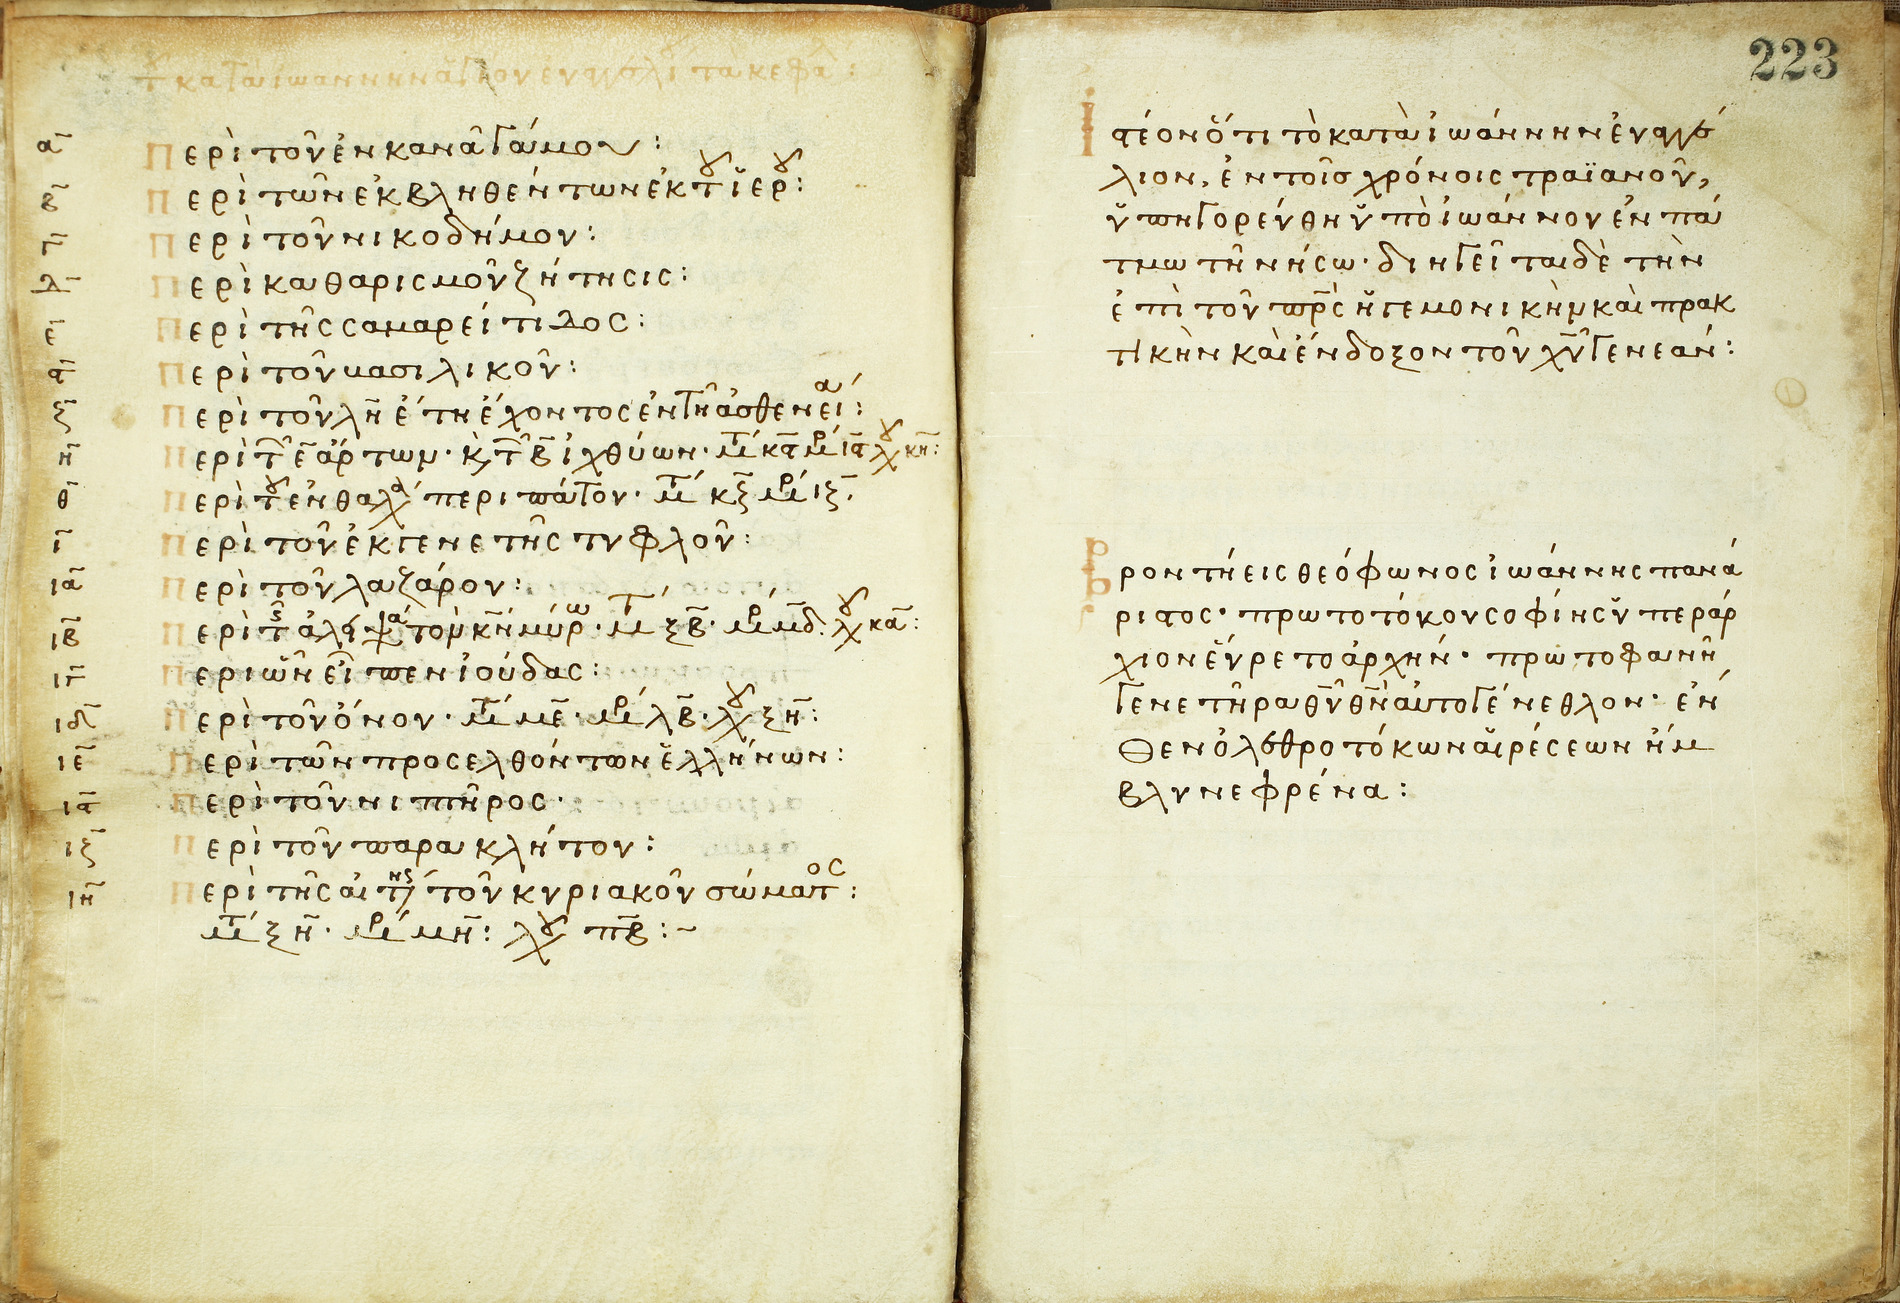 τ κατὰ ἰωάννην ἅγιον εὐαγγελι τὰ κεφα :
α Περὶ τοῦ ἐν κανᾶ γάμου :
β Περὶ τῶν ἐκβληθέντων ἐκ τοῦ ἱερου :
γ Περὶ τοῦ νικοδήμου :
δ Περὶ καθαρισμοῦ ζήτησις :
ε Περὶ τῆς σαμαρείτιδος :
ϛ Περὶ τοῦ βασιλικοῦ :
ζ Περὶ τοῦ λη ἔτη ἔχοντος ἐν τῆ ἀσθενεία :
η Περὶ τ ε ἄρτων · κ τ β ἰχθύων · μτ κϛ μρ ιϛ λου κη :
θ Περὶ του ἐν θαλα περιπάτου · μτ κζ μρ ιζ
ι Περὶ τοῦ ἐκ γενετῆς τυφλοῦ :
ια Περὶ τοῦ λαζάρου :
ιβ Περὶ τ ἀλειψα τὸν κν μύρω · μτ ξβ · μρ μδ · λου κα :
ιγ Περι ὧν εἶπεν ἰούδας :
ιδ Περὶ τοῦ ὄνου · μτ με · μρ λβ · λου ξη :
ιε Περὶ τῶν προσελθόντων ἑλλήνων :
ιϛ Περὶ τοῦ νιπτῆρος ·
ιζ Περὶ τοῦ παρακλήτου :
ιη Περὶ τῆς αἰτης τοῦ κυριακοῦ σώματος :
μτ ξη · μρ μη : λου πβ : ~
223
ἰϛέον ὅτι τὸ κατὰ ἰωάννην ἐυαγγέ
λιον, ἐν τοῖς χρόνοις τραϊανοῦ,
ὑπηγορεύθη ὑπὸ ἰωάννου ἐν πά
τμω τῆ νήσω · διηγεῖται δὲ τὴν
ἐπὶ τοῦ πρς ἡγεμονικὴν καὶ πρακ
τικὴν καὶ ἔνδοξον τοῦ χυ γενεάν :
Βροντήεις θεόφωνος ἰωάννης πανά
ριϛος · πρωτοτόκου σοφίης ὑπεράρ
χιον εὕρετο ἀρχήν · πρωτοφανῆ
γενετῆρα θυ θν αὐτογένεθλον · ἔν
θεν ὀλεθροτόκων αἱρέσεων ἤμ
βλυνε φρένα :